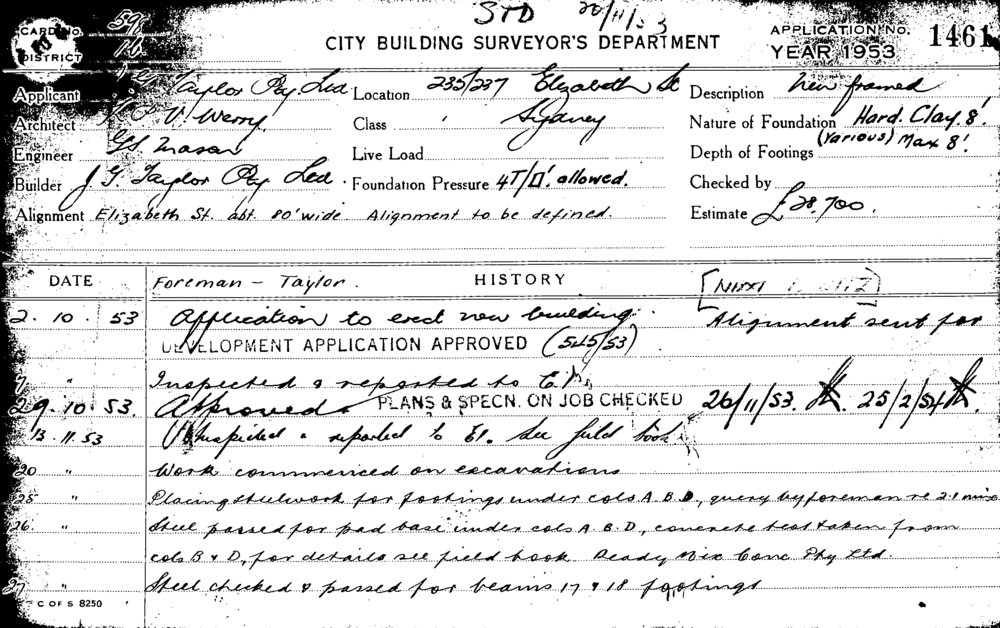 STD 20/11/53
CARD NO. 59/16
DISTRICT
CITY BUILDING SURVEYOR'S DEPARTMENT
APPLICATION NO. 1461
YEAR 1953
Applicant Taylor Pty Ltd Location 235/237 Elizabeth St Description New framed
Architect V. Werry Class Sydney Nature of Foundation Hard. Clay. 8'.
Engineer G.S. Mason Live Load Depth of Footings (Various) Max 8'.
Builder J G. Taylor Pty Ltd. Foundation Pressure 4T/□'. allowed. Checked by
Alignment Elizabeth St. abt. 80' wide Alignment to be defined. Estimate £28,700.
DATE Foreman - Taylor. HISTORY
2. 10. 53 Application to erect new building. Alignment sent for
DEVELOPMENT APPLICATION APPROVED (545/53)
7 " Inspected & reported to
29. 10. 53. Approved PLANS & SPECN. ON JOB CHECKED 26/11/53. 25/2/54
13. 11. 53 Inspected & reported to See field book
20 " Work commenced on excavations
25 " Placing steelwork for footings under cols A. B. D., query by foreman re 2.1 mix
26. " Steel passed for pad base under cols A. B. D, concrete test taken from
cols B & D, for details see field book Ready Mix Conc Pty Ltd
27 " Steel checked & passed for beams 17 & 18 footings
C OF S 8250